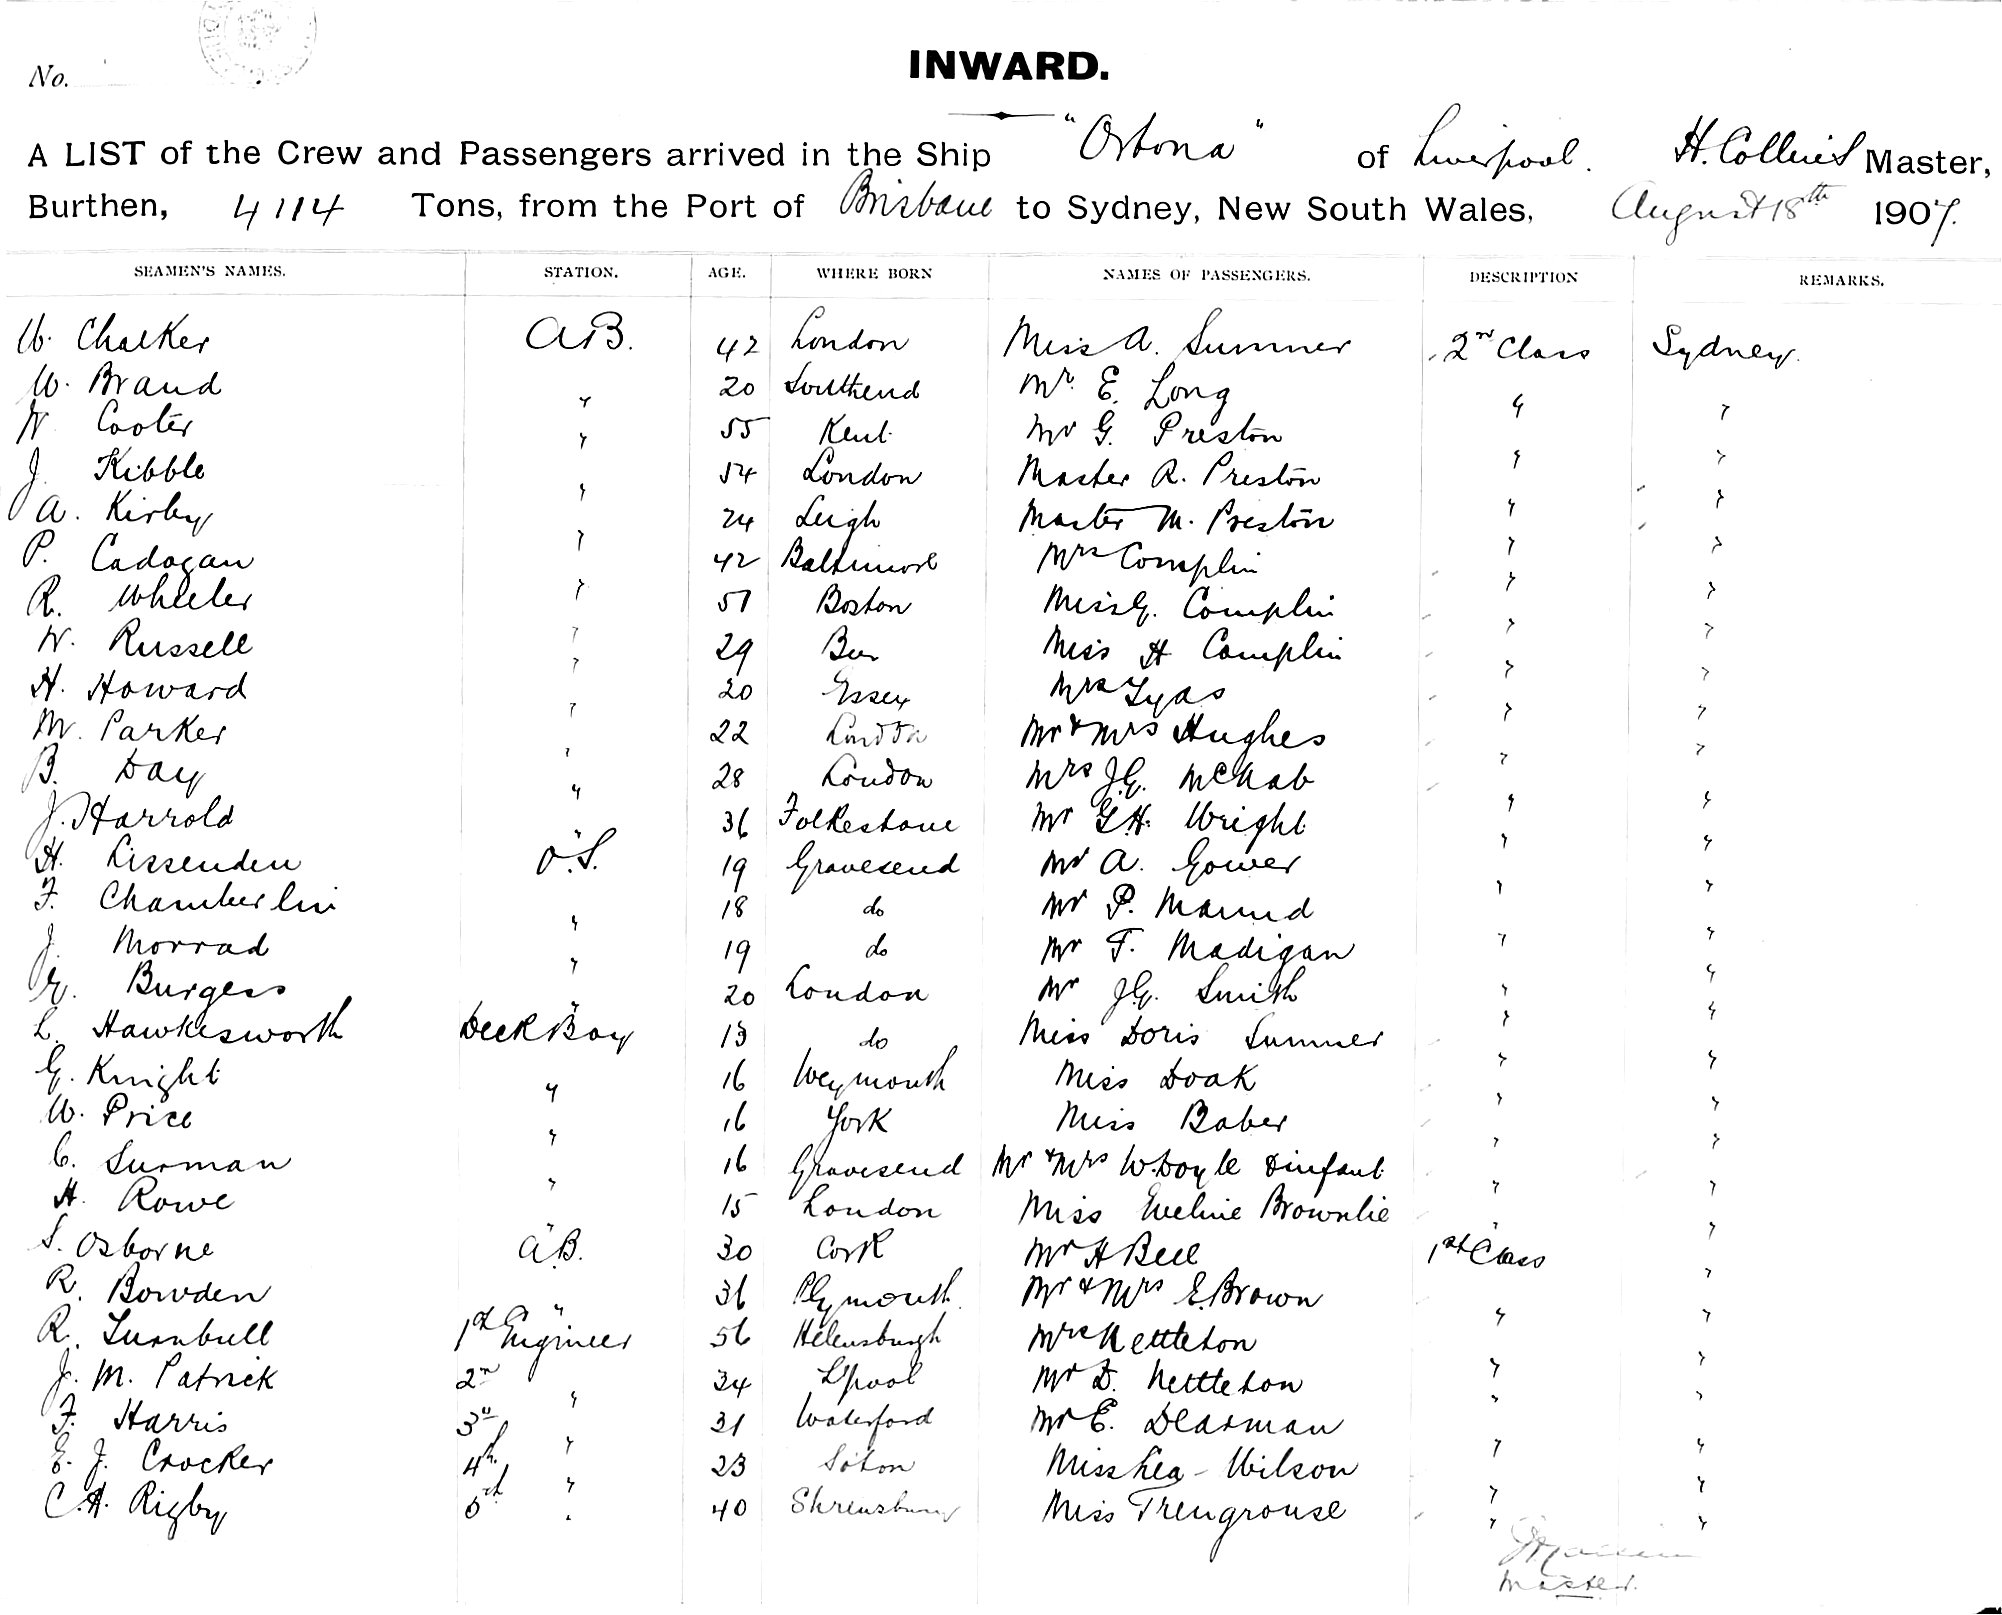 No.
INWARD.
A LIST of the Crew and Passengers arrived in the Ship "Ortona" of Liverpool. H. Collins Master,
Burthen, 4114 Tons, from the Port of Brisbane to Sydney, New South Wales, August 18th 1907.
SEAMEN'S NAMES. STATION. AGE. WHERE BORN NAMES OF PASSENGERS. DESCRIPTION REMARKS.
W. Chalker A.B. 42 London Miss A. Summer 2nd Class Sydney.
W. Brand " 20 Southend Mr. E. Long " "
W Cooter " 55 Kent Mr G. Preston " "
J. Kibble " 54 London Master R. Preston " "
A. Kirby " 24 Leigh Master M. Preston " "
P. Cadogan " 42 Baltimore Mrs Complin " "
R. Wheeler " 51 Boston Miss G. Complin " "
W. Russell " 29 Beer Miss H Complin " "
H. Howard " 20 Essex Mrs Lyas " "
W. Parker " 22 London Mr & Mrs Hughes " "
B. Day " 28 London Mrs J.G. McNab " "
J. Harrold " 36 Folkestone Mr G.H. Wright " "
H. Lissenden O.S. 19 Gravesend Mr A. Gower " "
F. Chamberlin " 18 do Mr P. " "
J. Morrad " 19 do Mr T. Madigan " "
G. Burgess " 20 London Mr J.G. Smith " "
L. Hawkesworth Deck Boy 15 do Miss Doris Summer " "
G. Knight " 16 Weymouth Miss Doak " "
W. Price " 16 York Miss Baber " "
C. Surman " 16 Gravesend Mr & Mrs W. Doyle & infant " "
H. Rowe " 15 London Miss Eveline Brownlie " "
S. Osborne A.B. 30 Cork Mr H Bell 1st Class "
R. Bowden " 36 Plymouth Mr & Mrs E. Brown " "
R. Turnbull 1st Engineer 56 Helensburgh Mrs Nettleton " "
J. M. Patrick 2nd " 34 L'pool Mr D. Nettleton " "
F. Harris 3rd " 31 Waterford Mr E. Dearman " "
E. J. Crocker 4th " 23 Soton Miss Lea-Wilson " "
C.H. Rigby 5th " 40 Shrewsbury Miss Trengrouse " "
Master.